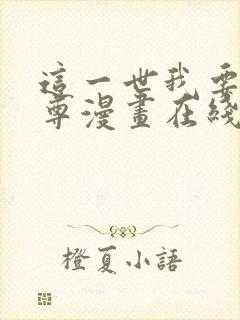 這一世我要
尊漫畫在綫
橙夏小語